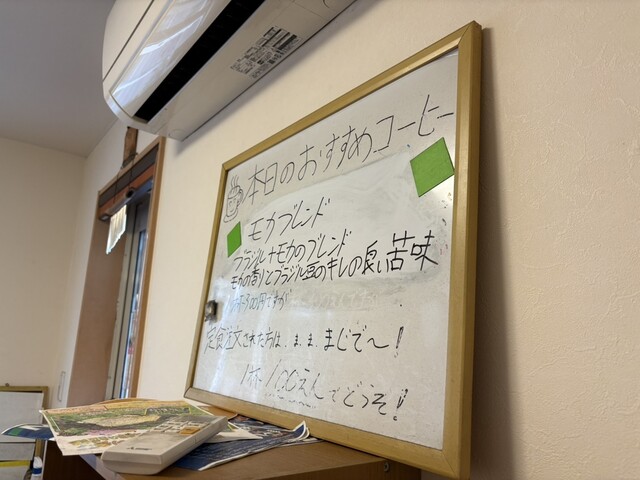 本日のおすすめコーヒー
モカブレンド
ブラジル+モカのブレンド
モカの香りとブラジル豆のキレの良い苦味
定食注文された方は、ま、ま、まじで〜!
1杯100えんでどうぞ!